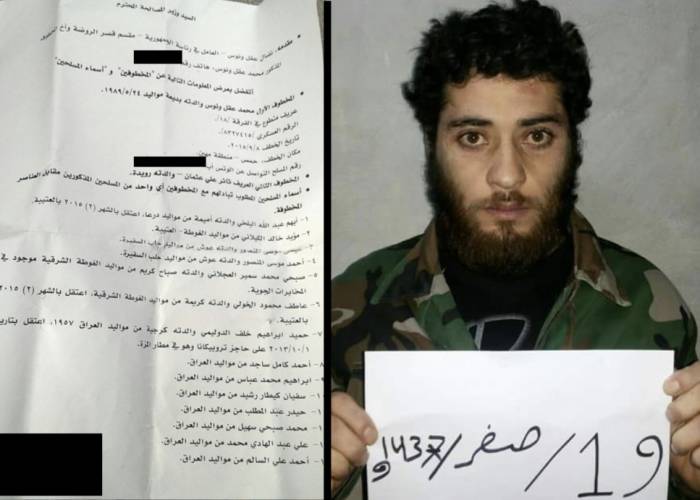 السيد وزير المصالحة المحترم
مقدمه: نضال عقل ونوس - العامل في رئاسة الجمهورية - مقسم قصر الروضة وأخ
المذكور محمد عقل ونوس، هاتف رقم
أتفضل بعرض المعلومات التالية عن "المخطوفين" و "أسماء المسلحين":
المخطوف الأول محمد عقل ونوس والدته بديعة مواليد ١٩٨٩/٥/٢٤،
عريف متطوع في الفرقة /١٨/.
الرقم العسكري /٨٣٢٧٤١٥/
تاريخ الخطف
مكان الخطف: حمص - منطقة مهين.
رقم المسلح التواصل عن
المخطوف الثاني العريف ثائر علي عثمان - والدته رويدة.
أسماء المسلحين المطلوب تبادلهم مع المخطوفين أي واحد من المسلحين المذكورين مقابل العناصر
المخطوفة.
١- أيهم عبد الله البلخي والدته أميمة من مواليد درعا، اعتقل بالشهر (٢) ٢٠١٥ بالعتيبة.
٢- مؤيد خالد الكيلاني من مواليد الغوطة - العتيبة.
٣- عيسى موسى المنصور والدته عوش من مواليد حلب السفيرة.
٤- أحمد موسى المنصور والدته عوش من مواليد حلب السفيرة.
٥- صبحي محمد سمير العجلاني والدته صباح كريم من مواليد الغوطة الشرقية موجود في
المخابرات الجوية.
٦- عاطف محمود الخولي والدته كريمة من مواليد الغوطة الشرقية، اعتقل بالشهر (٢) ٢٠١٥
بالعتيبة.
٧- حميد ابراهيم خلف الدوليمي والدته كرجية من مواليد العراق ١٩٥٧، اعتقل بتاريخ
٢٠١٣/١٠/١ على حاجز تروبيكانا وهو في مطار المزة.
أحمد كامل ساجد من مواليد العراق.
ابراهيم محمد عباس من مواليد العراق.
سفيان كيطار رشيد من مواليد العراق.
حيدر عبد المطلب من مواليد العراق.
محمد صبحي سهيل من مواليد العراق.
علي عبد الهادي محمد من مواليد العراق.
أحمد علي السالم من مواليد العراق.
19/صفر/1437